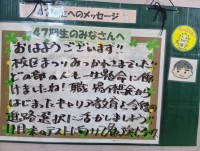 期生へのメッセージ
47期生のみなさんへ
おはようございます!!
校区まつりあっかれさまでした!!
どの部の人も一生懸命に働
けましたね!「職場体験から
はじまったキャリア教育と今後の
進路選択に活かしましょう!
11月末のテストに向けて